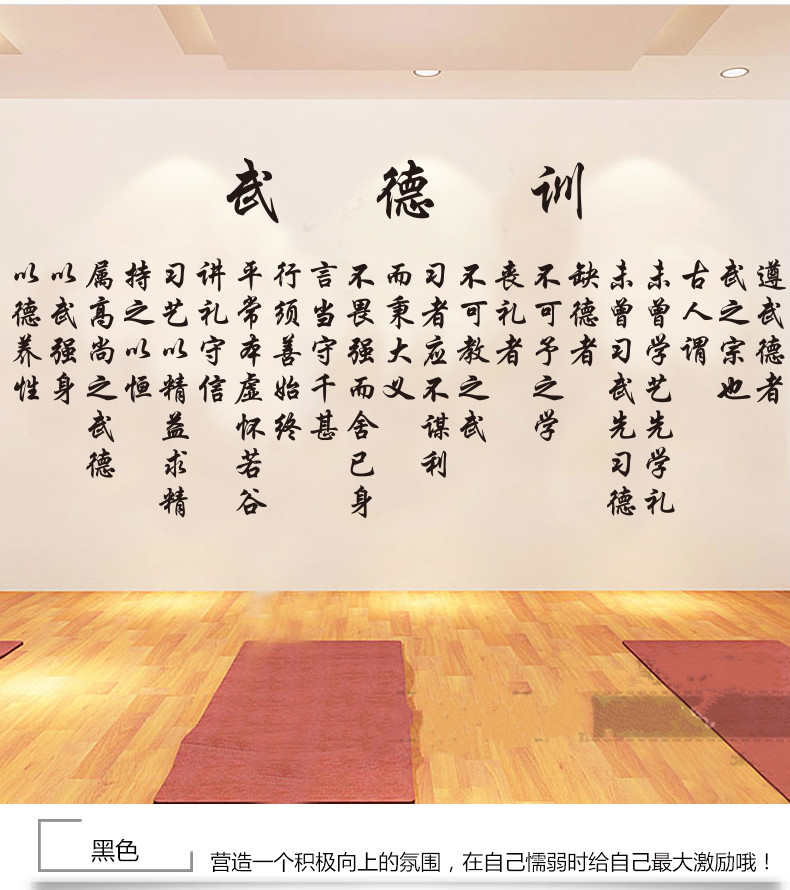 武德训
遵武德者
武之宗也
古人谓
未曾学艺先学礼
未曾习武先习德
缺德者
不可予之学
丧礼者
不可教之武
习者应不谋利
而秉大义
不畏强而舍己身
言当守千甚
行须善始终
平常本虚怀若谷
讲礼守信
习艺以精益求精
持之以恒
属高尚之武德
以武强身
以德养性
黑色
营造一个积极向上的氛围，在自己懦弱时给自己最大激励哦！